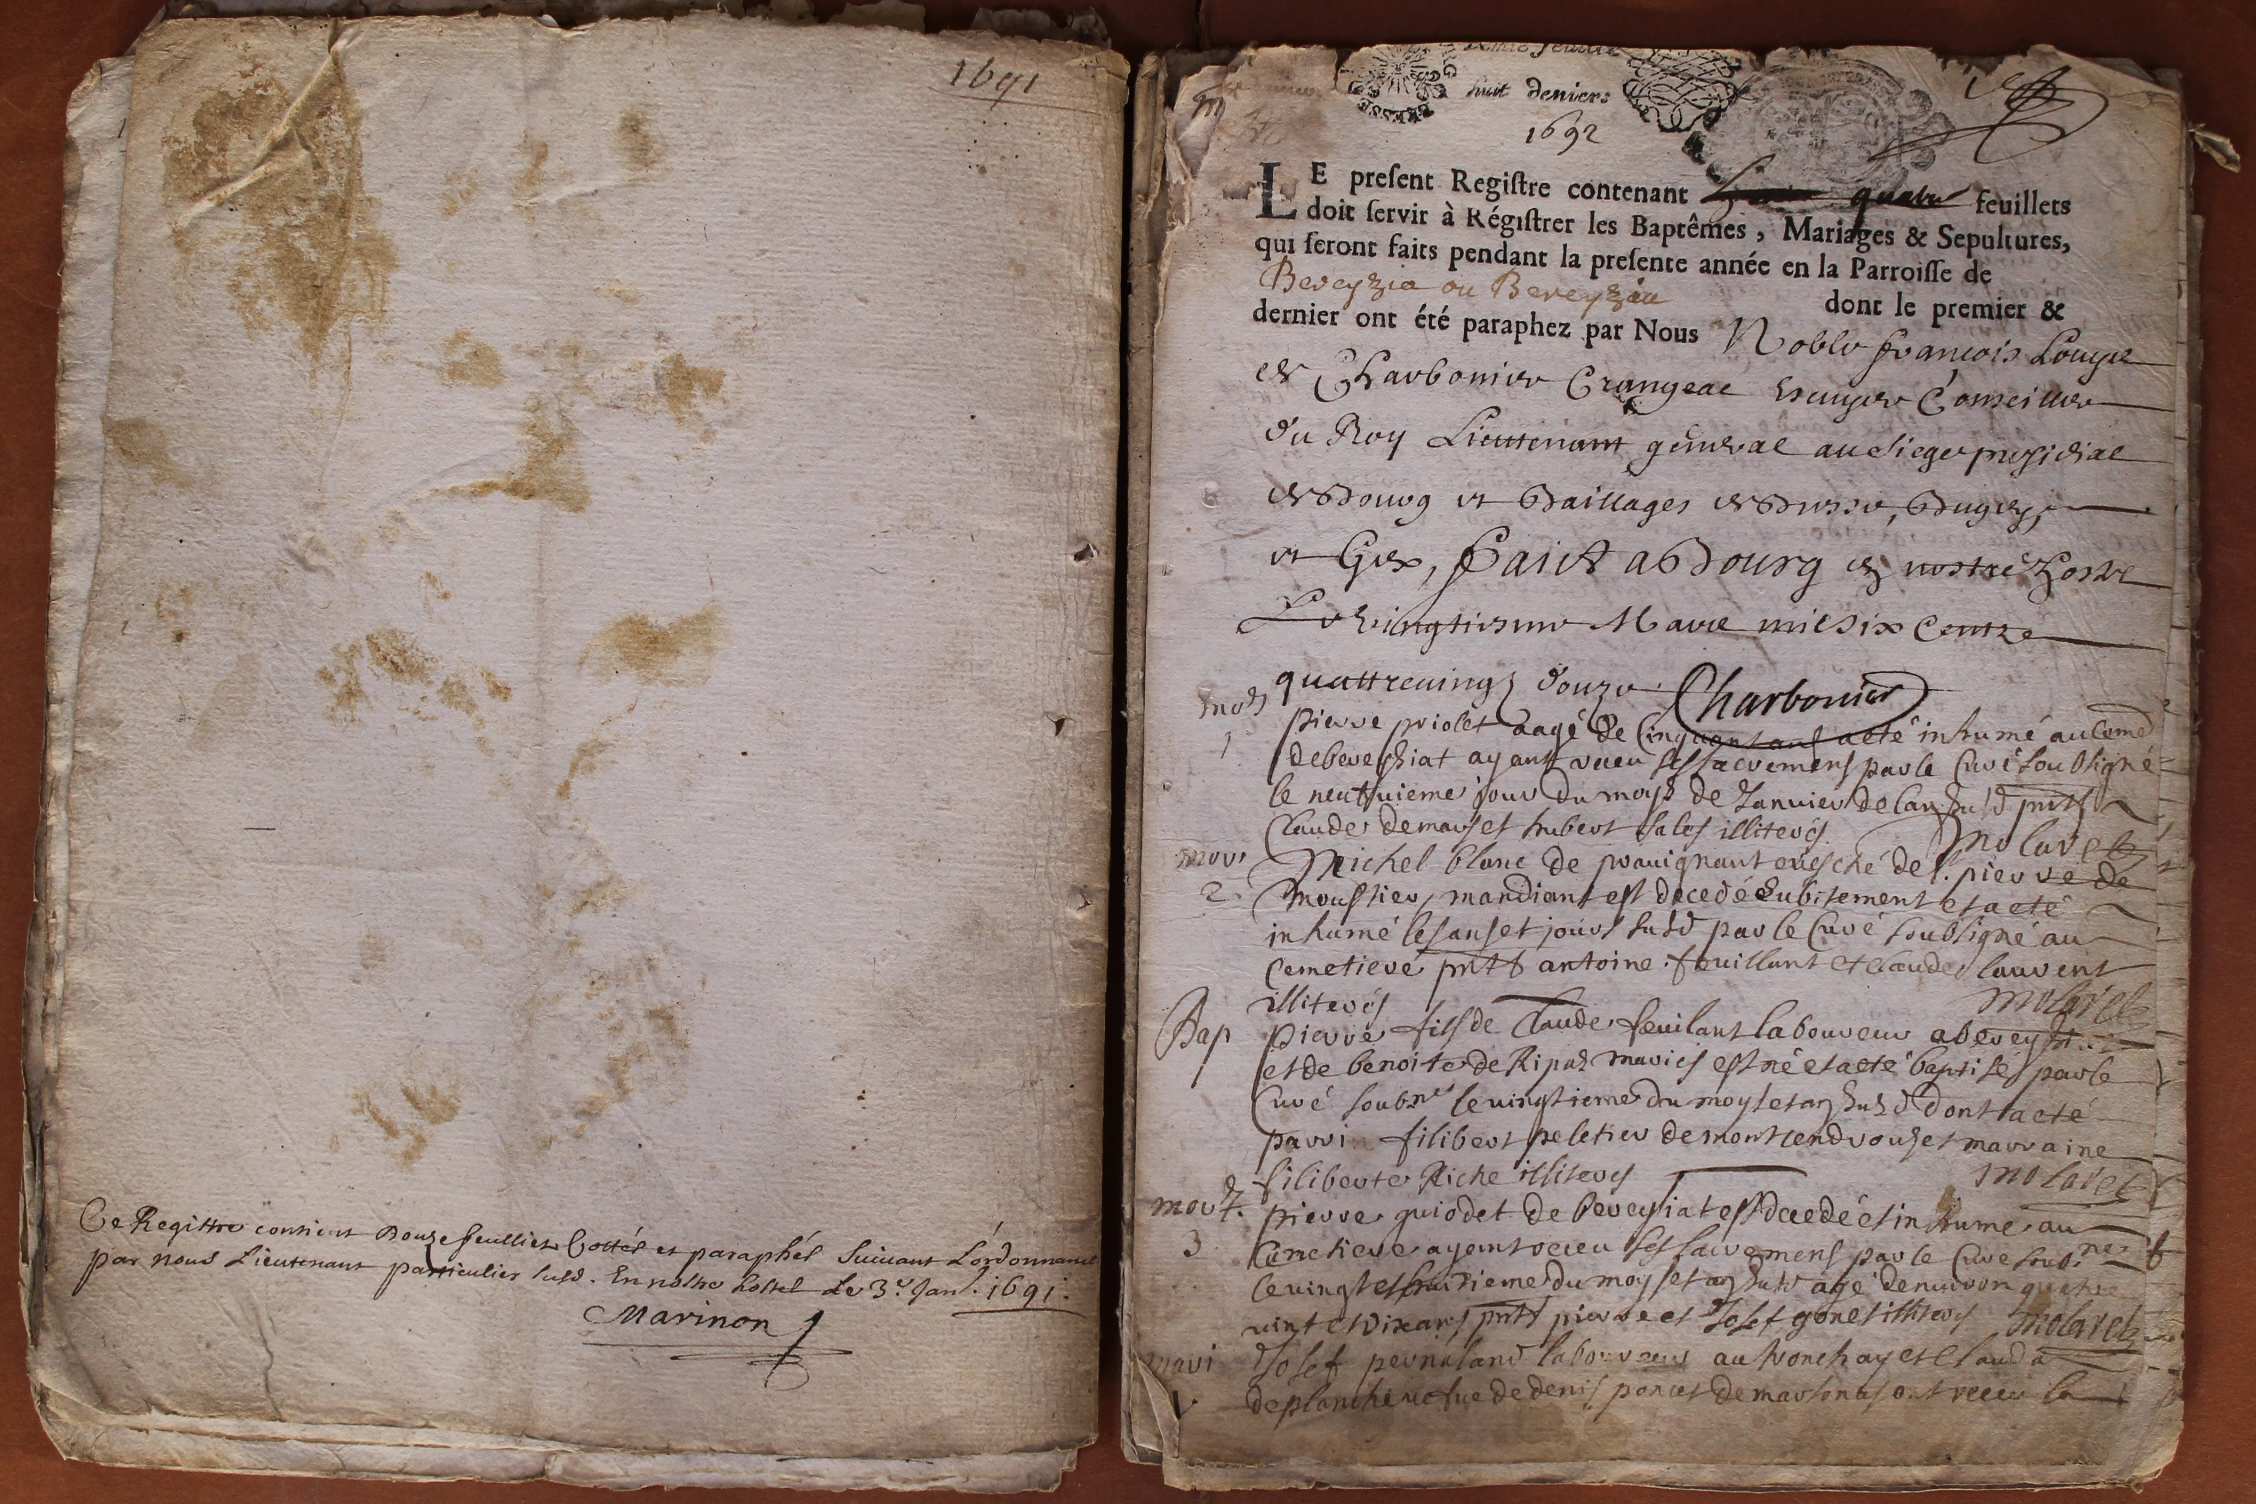 1691
Ce Registre contient Douze feuillets Cottés et paraphés Suivant L'ordonnance
par nous Lieutenant particulier susd. En nostre hostel le 3e Janv. 1691.
Marinon
feuille
huit deniers
1692
LE present Registre contenant quatre feuillets
doit servir à Régistrer les Baptêmes, Mariages & Sepultures,
qui seront faits pendant la presente année en la Parroisse de
Bereyzia ou Bereyziau dont le premier &
dernier ont été paraphez par Nous Noble françois Louys
de Charbonier Crangeac Escuyer Conseiller
du Roy Lieutenant général au siege presidial
de Bourg et Baillages de Bresse, Bugey,
et Gex, faict a Bourg en nostre hostel
Le vingtiesme Mars mil six Centz
quattrevingz douze. Charbonier
mort
1
pierre priolet aagé de Cinquant ans a eté inhumé au Ceme
de bereyziat ayant receu ses sacremens par le Curé soubsigné
le neufvieme jour du moys de Janvier de l'an susd pnts
Claude demars et hubert sales illiterés Molaret
mort
2
Michel blanc de prauignant evesché de S. pierre de
moustier, mandiant est decedé subitement et a eté
inhumé les ans et jours susd par le Curé soubsigné au
Cemetiere pnts antoine feuillant et claude laurent
illiterés Molaret
Bap
pierre fils de Claude feuilant laboureur a bereyzt
et de benoite de Ripaz mariés est né et a eté baptisé par le
Curé soubne le vingtieme du moys et an susd dont a eté
parrin filibert peletier de mont et marraine
filiberte Riche illiterés Molaret
mort.
3
pierre guiodet de bereysiat est decedé et inhumé au
Cemetiere ayant receu ses sacremens par le Curé soubne
le vingt et huitieme du moys et an susd agé denviron quatre
vint et dix ans pnts pierre et Josef gonet illiterés Molaret
mari
Josef pernoland laboureur au tronchay et Clauda
deplanche ve fue de denis poncet de marsonas ont receu la